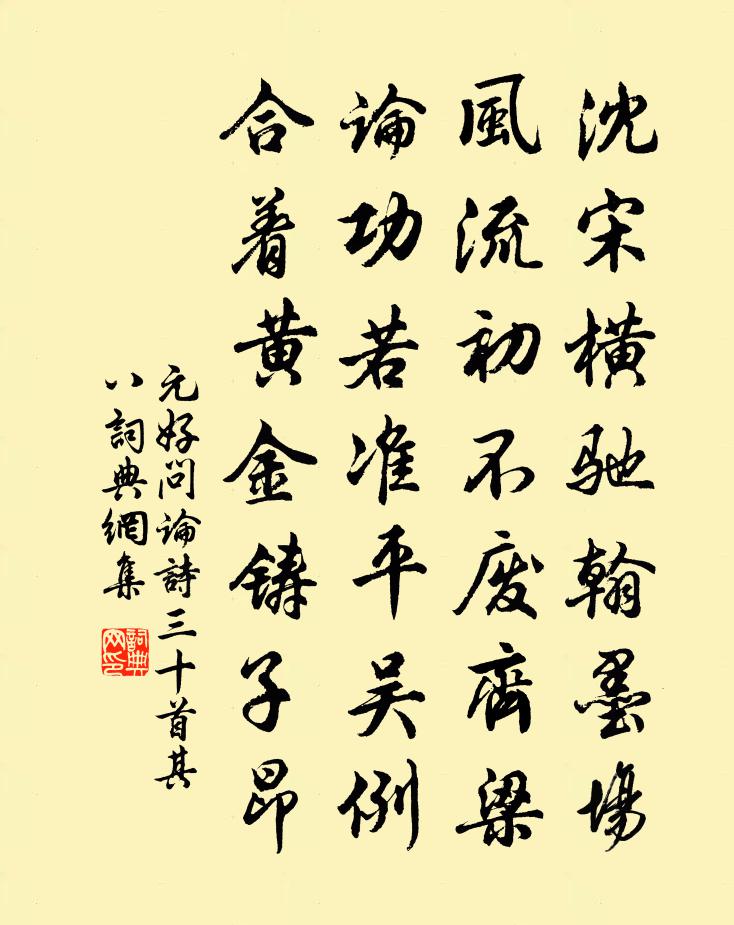 沈宋橫馳翰墨場
風流初不廢齊梁
論功若准平吴例
合着黄金鑄子昂
元好问論詩三十首其
八詞典網集
詞典网印